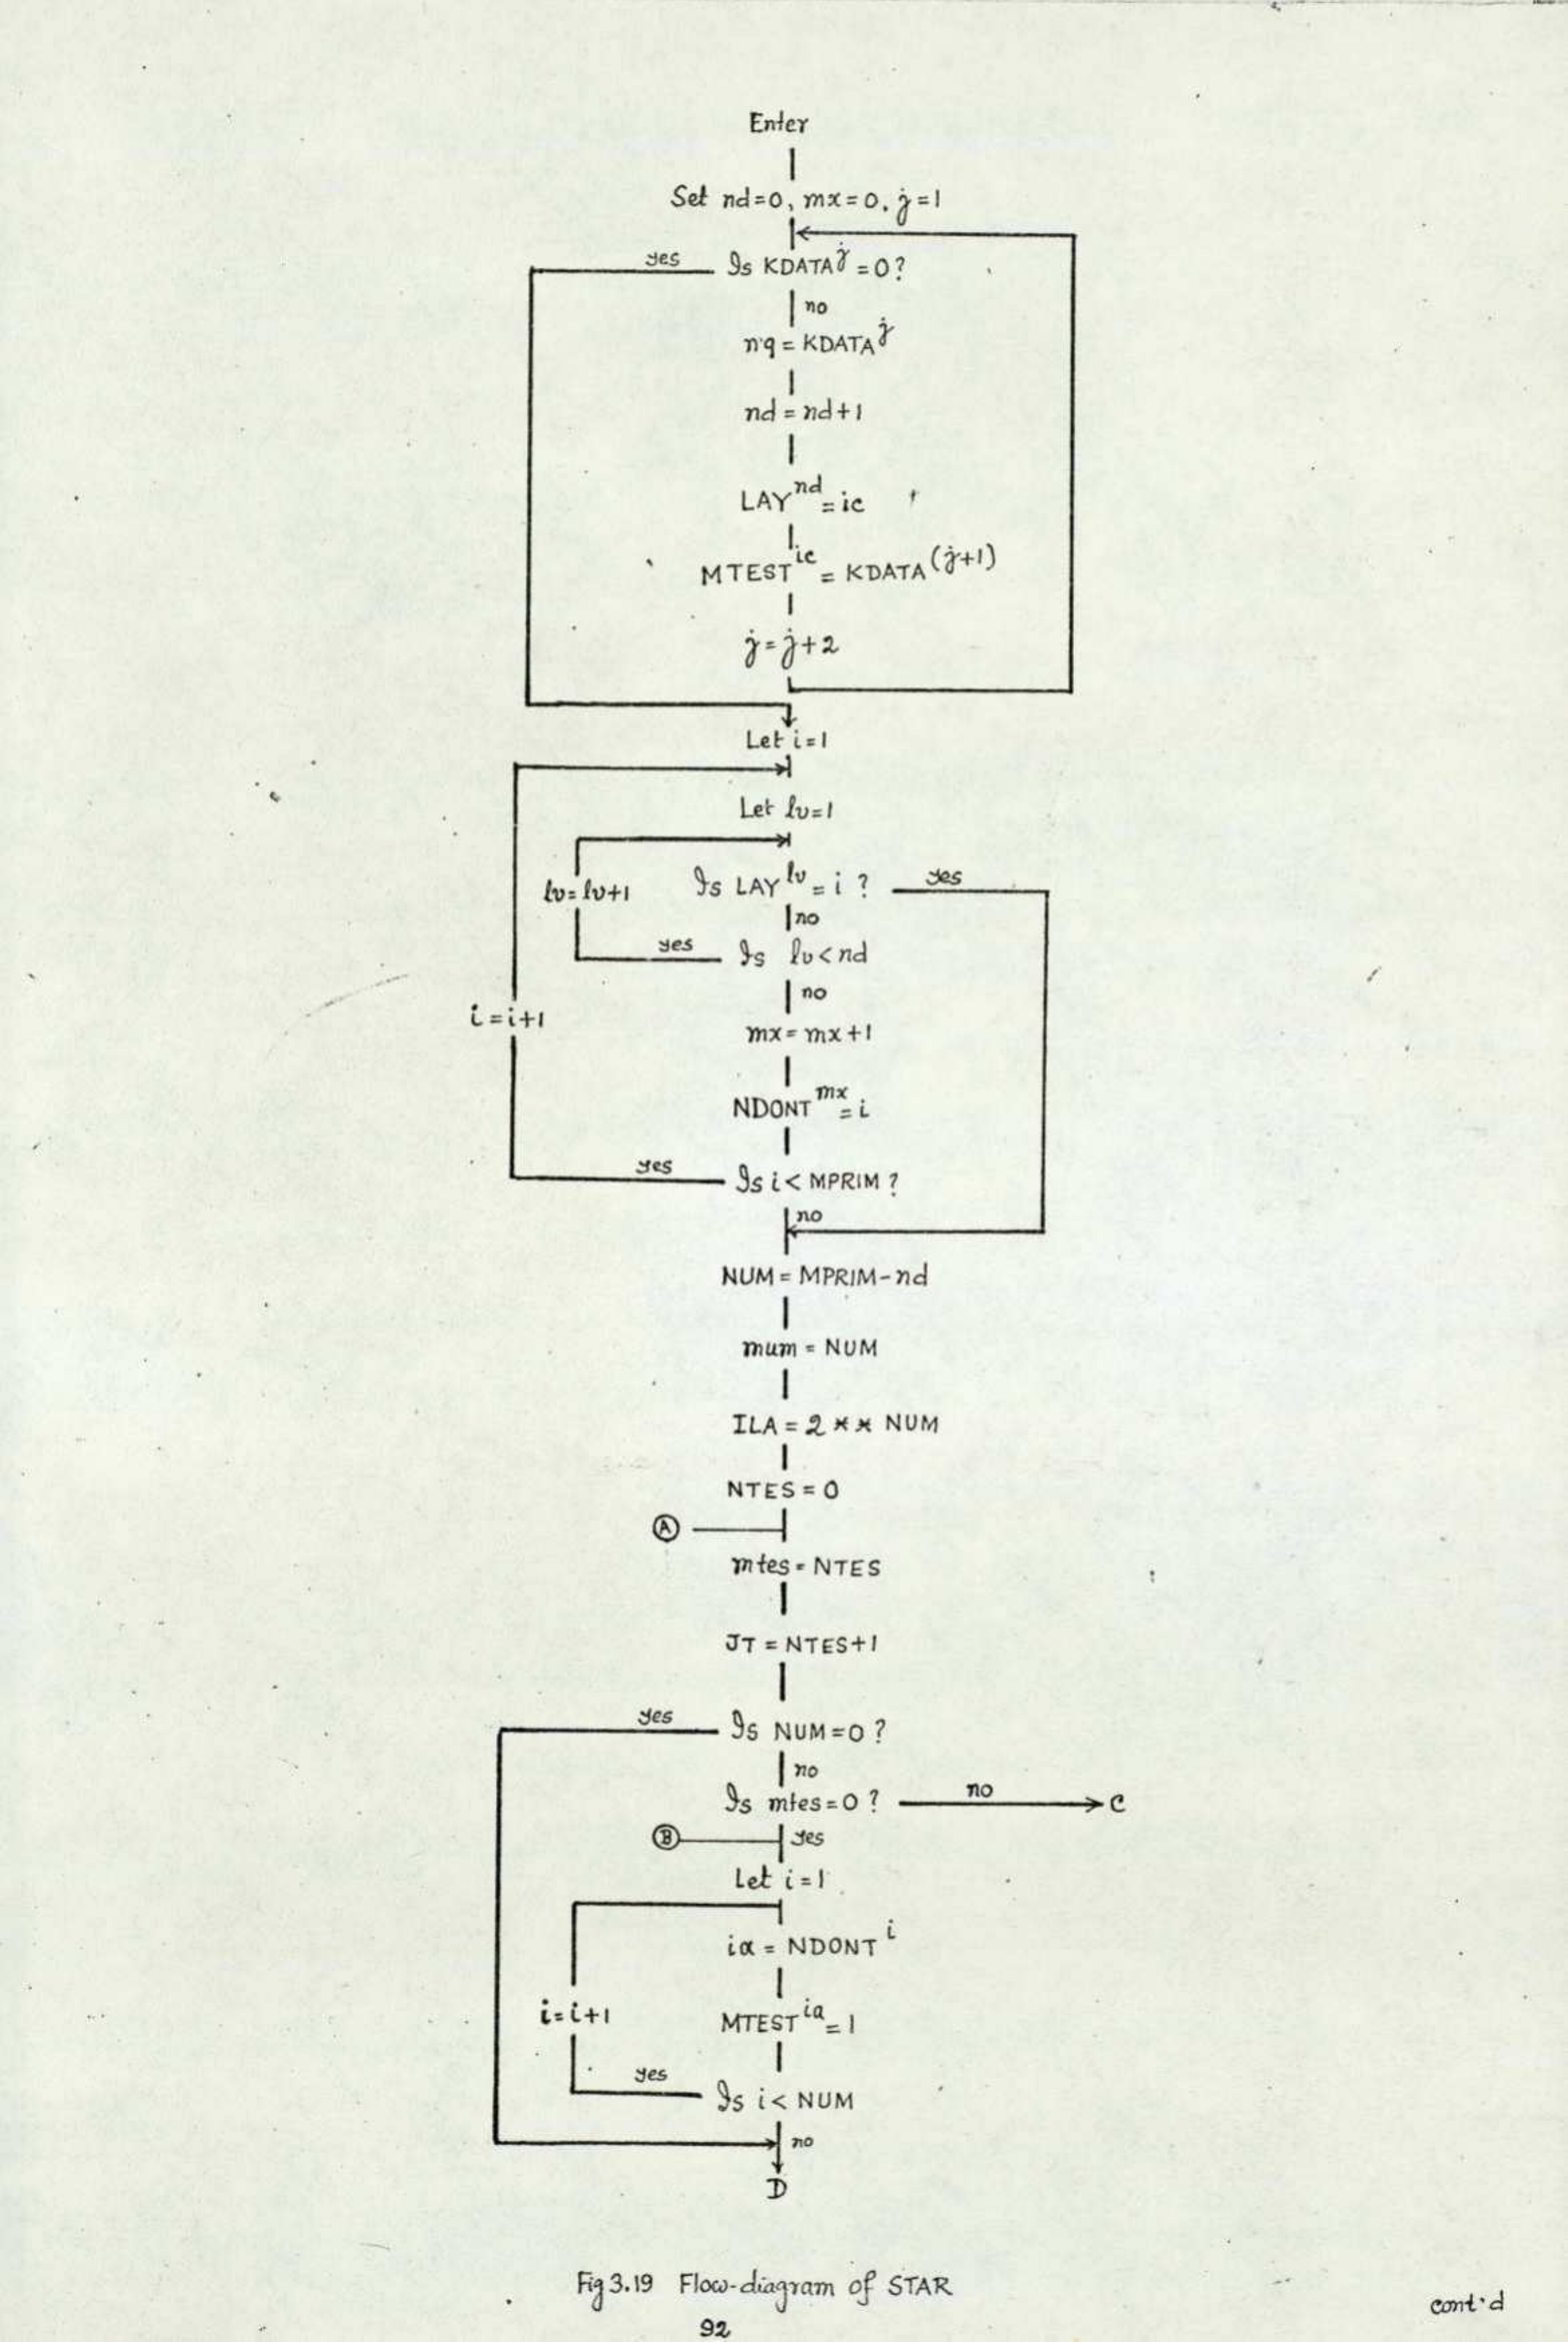 Enter
Set nd=0, mx=0, j=1
yes Is KDATA^j =0?
no
nq = KDATA^j
nd = nd+1
LAY^nd = ic
MTEST^ic = KDATA^(j+1)
j = j+2
Let i=1
Let lv=1
lv=lv+1 Is LAY^lv = i ? yes
no
yes Is lv<nd
no
i=i+1
mx = mx+1
NDONT^mx = i
yes Is i< MPRIM ?
no
NUM = MPRIM-nd
mum = NUM
ILA = 2 ** NUM
NTES = 0
A
mtes = NTES
JT = NTES+1
yes Is NUM=0 ?
no
Is mtes=0 ? no C
B yes
Let i=1
ia = NDONT^i
i=i+1 MTEST^ia = 1
yes Is i< NUM
no
D
Fig 3.19 Flow-diagram of STAR
cont'd
92